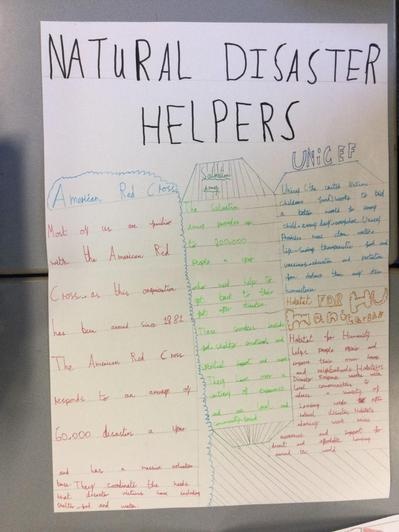 NATURAL DISASTER
HELPERS
American Red Cross
Most of us are familiar
with the American Red
Cross as this organisation
has been around since 1881
The American Red Cross
responds to an average of
60,000 disasters a year
and has a massive volunteer
base. They coordinate the needs
that disaster victims have including
shelter, food and water
Salvation
Army
The Salvation
Army provides up
to 200,000
people a year
who need help to
get back to their
after disaster
These services include
food, shelter, emotional and
medical support and more
They have over a
century of experience
and are and
community based
UNICEF
Unicef (the united nations
childrens fund) works to build
a better world for every
child, every day, everywhere. Unicef
Provides clean water,
life-saving therapeutic food and
education and protection
for children
Habitat FOR HU
Habitat for Humanity
helps people repair and
improve their own homes
and neighbourhoods. Habitats
Disaster Response works with
local communities to
address a variety of
housing needs after
natural disaster. Habitats
work raises
awareness and support for
decent and affordable housing
around the world